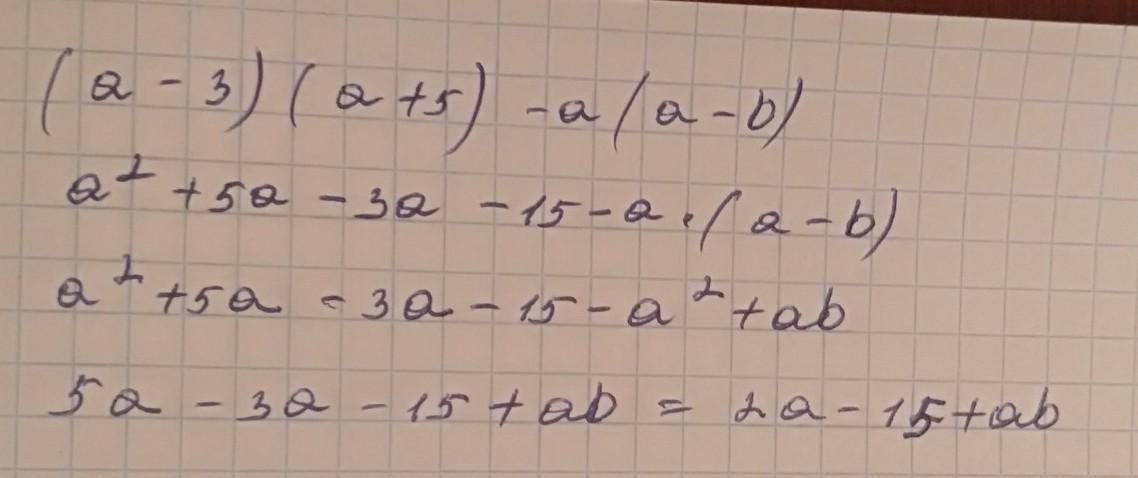 (a - 3)(a + 5) - a(a - b)
a² + 5a - 3a - 15 - a · (a - b)
a² + 5a - 3a - 15 - a² + ab
5a - 3a - 15 + ab = 2a - 15 + ab